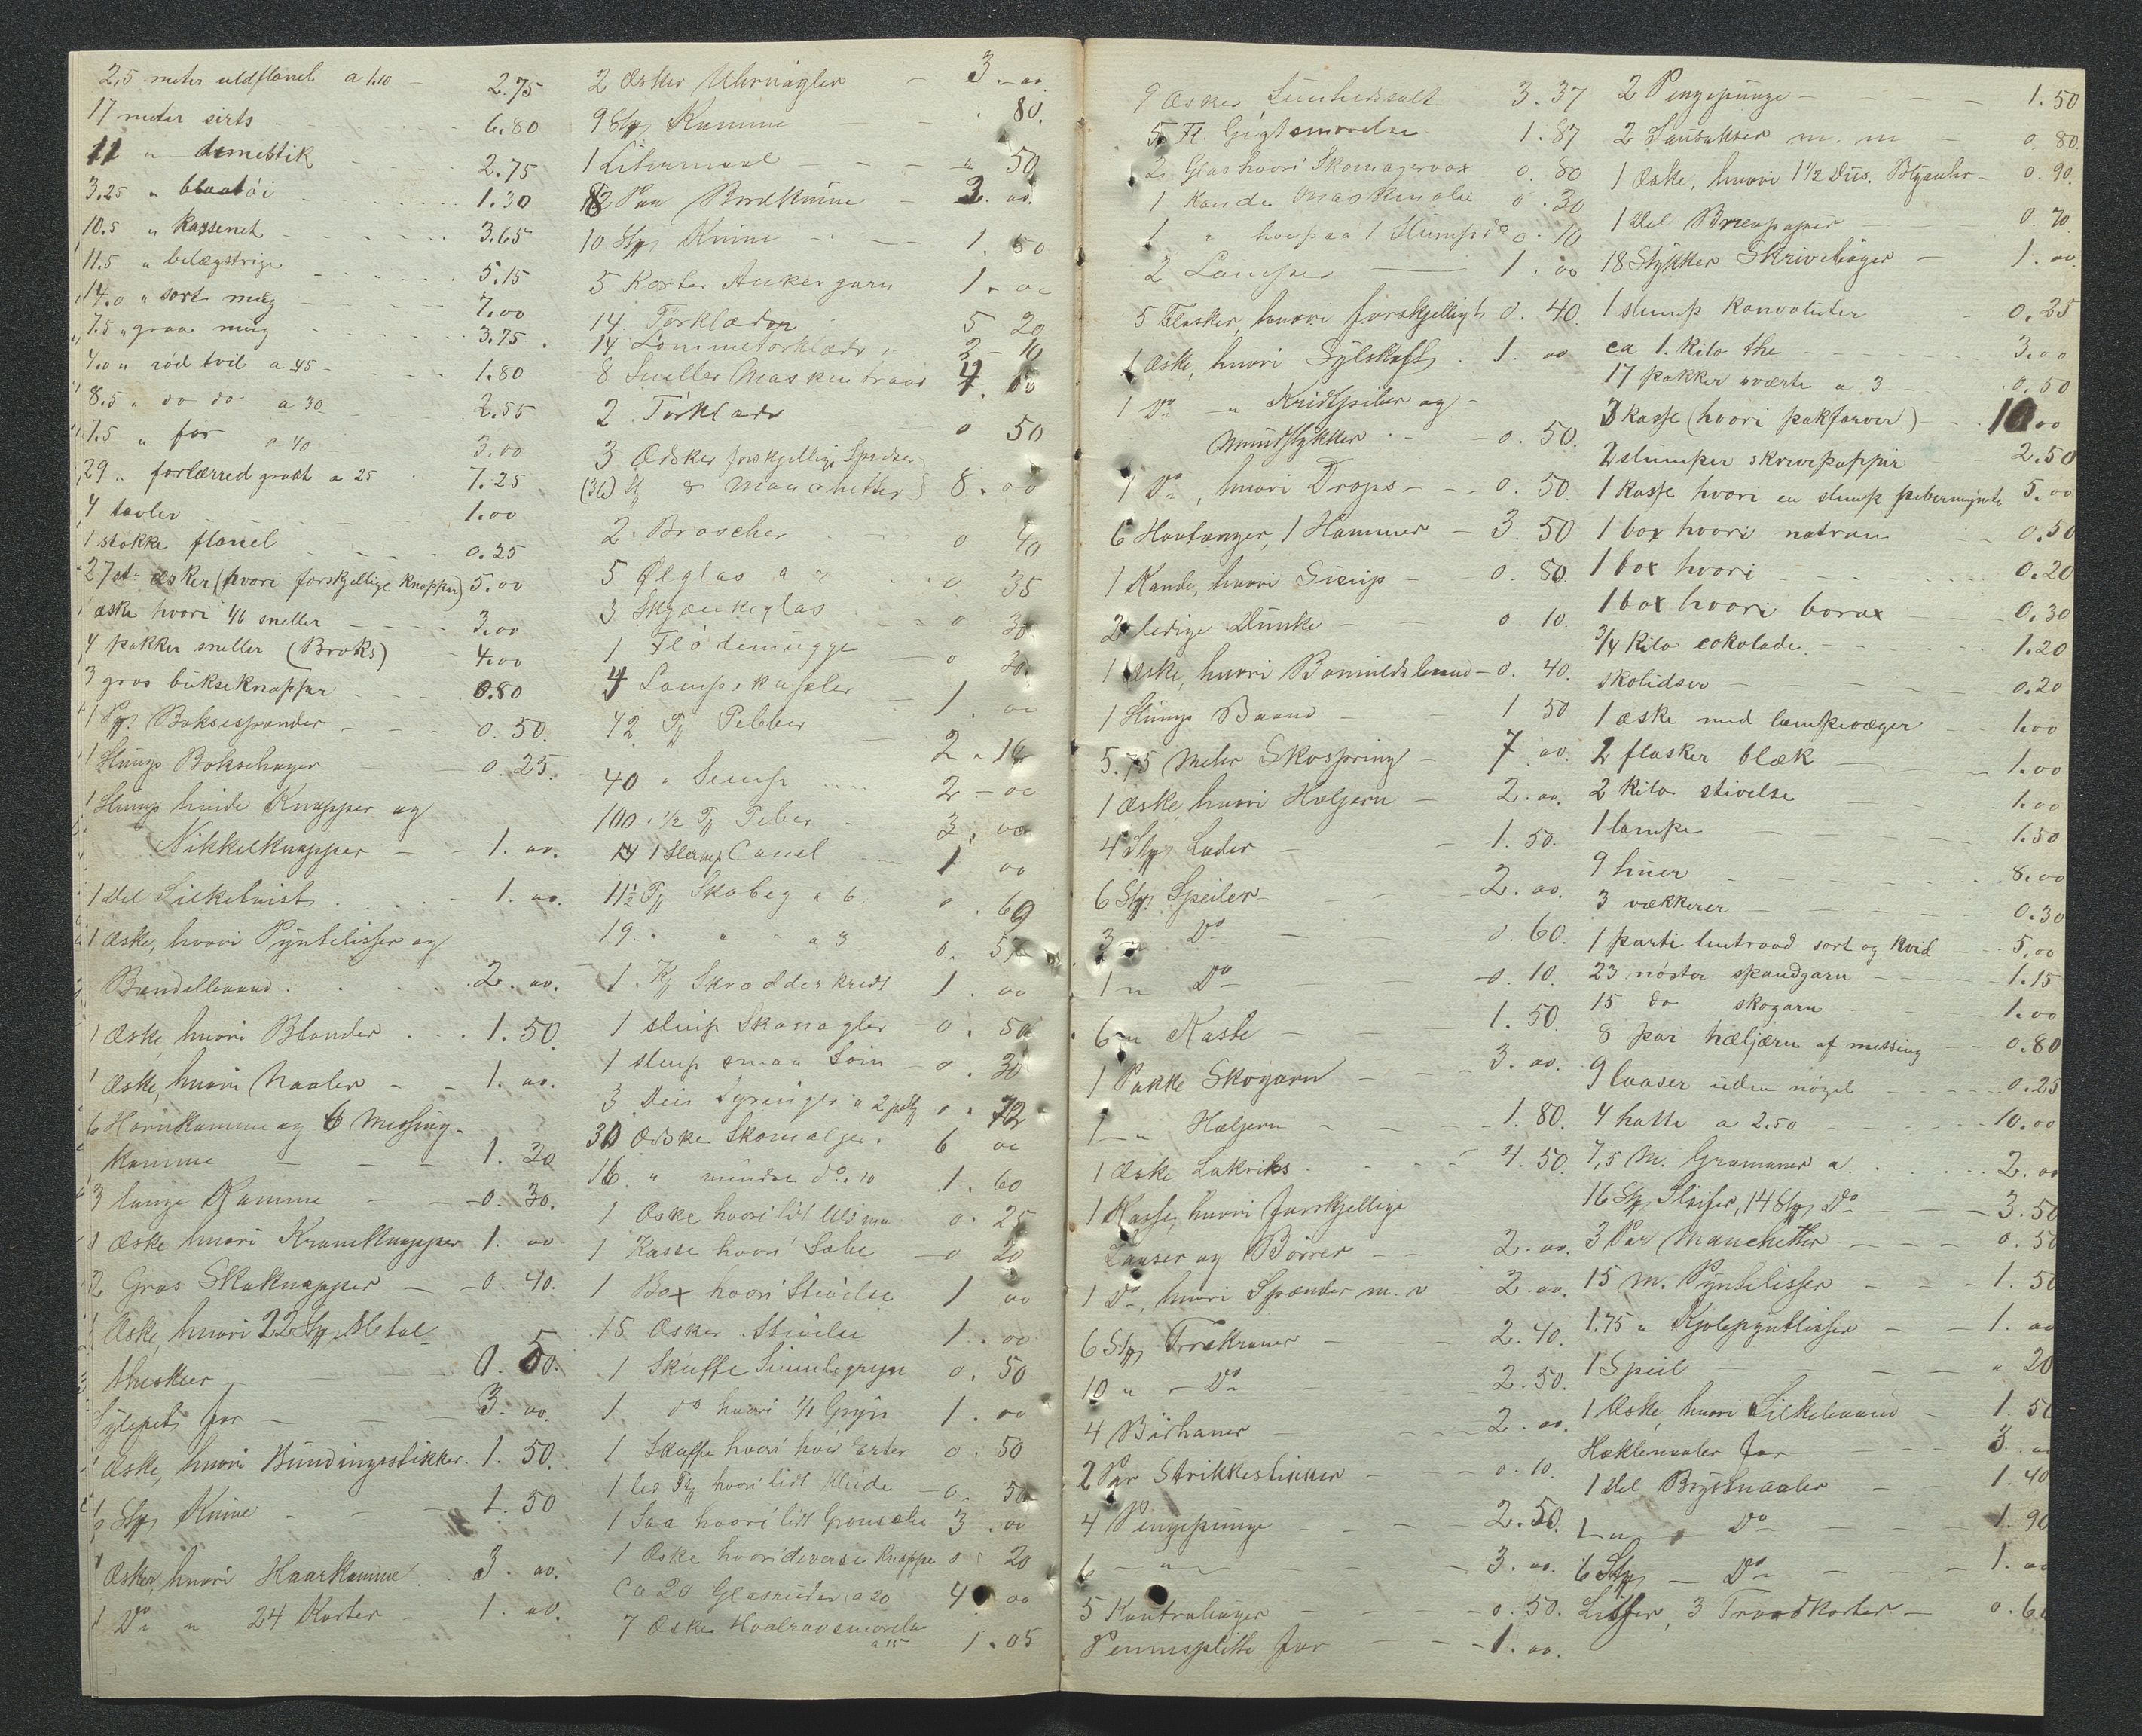 2,5 meter uldflanel a 1.10 - 2.75
17 meter sirts - 6.80
11 " domestik - 2.75
3.25 " blaatöi 1.30
10.5 " kassenet - 3.65
11.5 " belægstrige 5.15
14.0 " sort - 7.00
7.5 " graa - 3.75
4.0 " röd tvil a 45 - 1.80
8.5 " do do a 30 2.55
7.5 " for a 40 3.00
29 " forlærred graat a 25 7.25
4 tavler 1.00
1 stökke flanel 0.25
27 st. æsker (hvori forskjellige knapper) 5.00
1 æske hvori 46 sneller - 3.00
4 pakker sneller (Broks) - 4.00
3 gros bukseknapper - 0.80
Boksespænder - 0.50.
1 Slump Boksehager - 0.25.
1 Slump hvide Knapper og
Nikkelknapper - 1. 00.
1 Del Silketvist 1. 00.
1 Æske, hvori Pyntelisser og
Bændelbaand . 2. 00.
1 Æske hvori Blonder 1. 50.
1 Æske, hvori Naaler - 1. 00.
6 Hornkamme og 6 Messing-
kamme - 1. 20
3 lange Kamme - 0. 30.
1 Æske hvori Kraveknapper 1. 00
2 Gros Skoknapper - 0. 40.
1 Æske, hvori 22 Stk Metal
theskeer 0. 50.
Sylspets for - 3. 00.
Æske, hvori Bundingsstikker 1. 50.
9 Stk Knive - 1. 50
Æsker, hvori Haarkamme 3. 00.
1 Do " 24 Karter - 1. 00.
2 Æsker Uhrnøgler - 3. 00.
9 Stk Kamme 80.
1 Litermaal - " 50
Par Bordknive - 2. 00.
10 Stk Knive - 1. 50
5 Karter Ankergarn 1. 00
14. Törklæder 5 20
14 Lommetörklæder " 2 - 10
8 Sneller Maskintraad 4. 00
2. Törklæde 0 50
3 Æsker forskjellige
(36) Stk & Manchetter 8. 00
2. Broscher 0 40
5 Ölglas a 7 0 35
3 Skjænkeglas 0 30
1 Flödemugge - 0 20.
4 Lampekupler 1. 00
42 Pk Pebber 2. 10
40 " Senep 2 - 00
100 1/2 Pk Peber - 3. 00
1 Slump Canel - 1 00
11½ Pk Skobeg a 6 0. 69
19. " " a 3 0. 57
1. Kg Skrædderkridt 1. 00
1 slump Skonagler - 0. 50
1 slump smaa Söm - 0. 30
3 Dus Syringer a 2 0. 72
30 Ædsker Skomaljer. 6 00
16. " mindre do a 10 1. 60
1 Æske hvori lidt 0. 25
1 Kasse hvori Sæbe - 0 20
1 Box hvori Stivelse 1 00
15 Æsker Stivelse 1. 00
1 Skuffe Semulegryn 0. 50
1 do hvori 1/1 Gryn 1. 00
1 Skuffe hvori hvid Erter 0. 50
hvori lidt - 0. 50
1 Saa hvori lidt Grönsæbe 3. 00
1 Æske hvori diverse Knappe 0. 20
Ca 20 Glasruder, a 20 4 00
7 Æske Hvalravsmörelse
a 15 1. 05
9 Æsker Sundhedssalt 3. 37
5 Fl. Gigtsmørelse 1. 87
2 Glas hvori Skomagervox 0. 80
1 Kande Maskinolie 0. 30
1 " hvorpaa 1 Slump do 0. 10
2 Lamper - 1. 00
5 Flasker, hvori forskjelligt 0. 40.
1 Æske, hvori Sylskaft . 1. 00
1 Do " Kridtpiber og
Mundstykker - 0. 50.
1 Do, hvori Drops - 0. 50.
6 Hovtænger, 1 Hammer - 3. 50
1 Kande, hvori Sirup - 0. 80.
2 ledige Dunke - 0. 10.
1 Æske, hvori Bomuldsbaand - 0. 40.
1 Slump Baand - 1 50
5.75 Meter Skospring - 7. 00.
1 Æske, hvori Hæljern - 2. 00.
4 Stk Læder - 1. 50.
6 Stk Speiler - 2. 00.
3 " Do - 0. 60.
1 " Do - 0. 10.
6 " Koste - 1. 50.
1 Pakke Skogarn - 3. 00.
1 " Hæljern - 1. 80.
1 Æske Lakriks 4. 50.
1 Kasse, hvori forskjellige
Laaser og Börrer - 2. 00.
1 Do, hvori Spænder m. v - 2. 00.
6 Stk Trækraner - 2. 40.
10 " - Do 2. 50.
4 Birhaner - 2. 00.
2 Par Strikkestikker - 0. 10.
4 Pengepunge - 2. 50.
6 - " - 3. 00.
5 Kontrabøger - 0. 50.
Pennesplitte for - 1. 00.
2 Pengepunge - 1. 50
2 Sausakser m. m - 0. 80.
1 Æske, hvori 1 1/2 Dus. Blyanter - 0. 90.
1 Del Brevpapir 0. 70.
18 Stykker Skrivebøger - 1. 00.
1 slump konvoluter - 0. 25
ca 1. kilo the - 3.00
17 pakker sværte a 3 - 0. 50
3 kasse (hvori pakfarver) - 10.00
2 slumper skrivepappir - 2.50
1 kasse hvori en slump pebermynte 5.00
1 box hvori natron - 0.50
1 box hvori - 0.20
1 box hvori borax - 0.30
3/4 kilo cokolade. - 1.20
skolidser - 0.20
1 æske med lampevæger - 1.00
2 flasker blæk - 1.00
2 kilo stivelse 1.00
1 lampe - 1.50
9 huer - 8.00
3 vækkerer - 0.30
1 parti lintraad sort og hvid - 5.00
23 nöster spundgarn - 1.15
15 do skogarn - 1.00
8 par hæljærn af messing - 0.80
9 laaser uden nögel - 0.25
4 hatte a 2.50 - 10.00
7,5 M. Gramaner a. 2. 00
16 Stk Sløifer, 14 Stk Do - 3. 50
3 Par Manchetter - 0. 50
15 M. Pyntelisser - 1. 50
1.75 " Kjolepyntlisser - 1. 00
1 Speil - " 20
1 Æske, hvori Silkebaand - 1. 50
Heklenaaler for - 3. 00
1 Del Brystnaaler - 1. 40
1 " Do - 1. 90
6 Stk - Do - 1. 00
Lisser, 3 Traadkarter - 0. 60